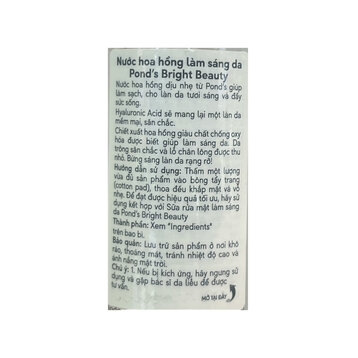 Nước hoa hồng làm sáng da
Pond's Bright Beauty
Nước hoa hồng dịu nhẹ từ Pond's giúp
làm sạch, cho làn da tươi sáng và đầy
sức sống.
Hyaluronic Acid sẽ mang lại một làn da
mềm mại, săn chắc.
Chiết xuất hoa hồng giàu chất chống oxy
hóa được biết giúp làm sáng da. Da
trông săn chắc và lỗ chân lông được thu
nhỏ. Bừng sáng làn da rạng rỡ!
Hướng dẫn sử dụng: Thấm một lượng
vừa đủ sản phẩm vào bông tẩy trang
(cotton pad), thoa đều khắp mặt và vỗ
nhẹ. Để đạt được hiệu quả tối ưu, hãy sử
dụng kết hợp với Sữa rửa mặt làm sáng
da Pond's Bright Beauty
Thành phần: Xem "Ingredients"
trên bao bì.
Bảo quản: Lưu trữ sản phẩm ở nơi khô
ráo, thoáng mát, tránh nhiệt độ cao và
ánh nắng mặt trời.
Chú ý: 1. Nếu bị kích ứng, hãy ngưng sử
dụng và gặp bác sĩ da liễu để được
tư vấn.
MỞ TẠI ĐÂY